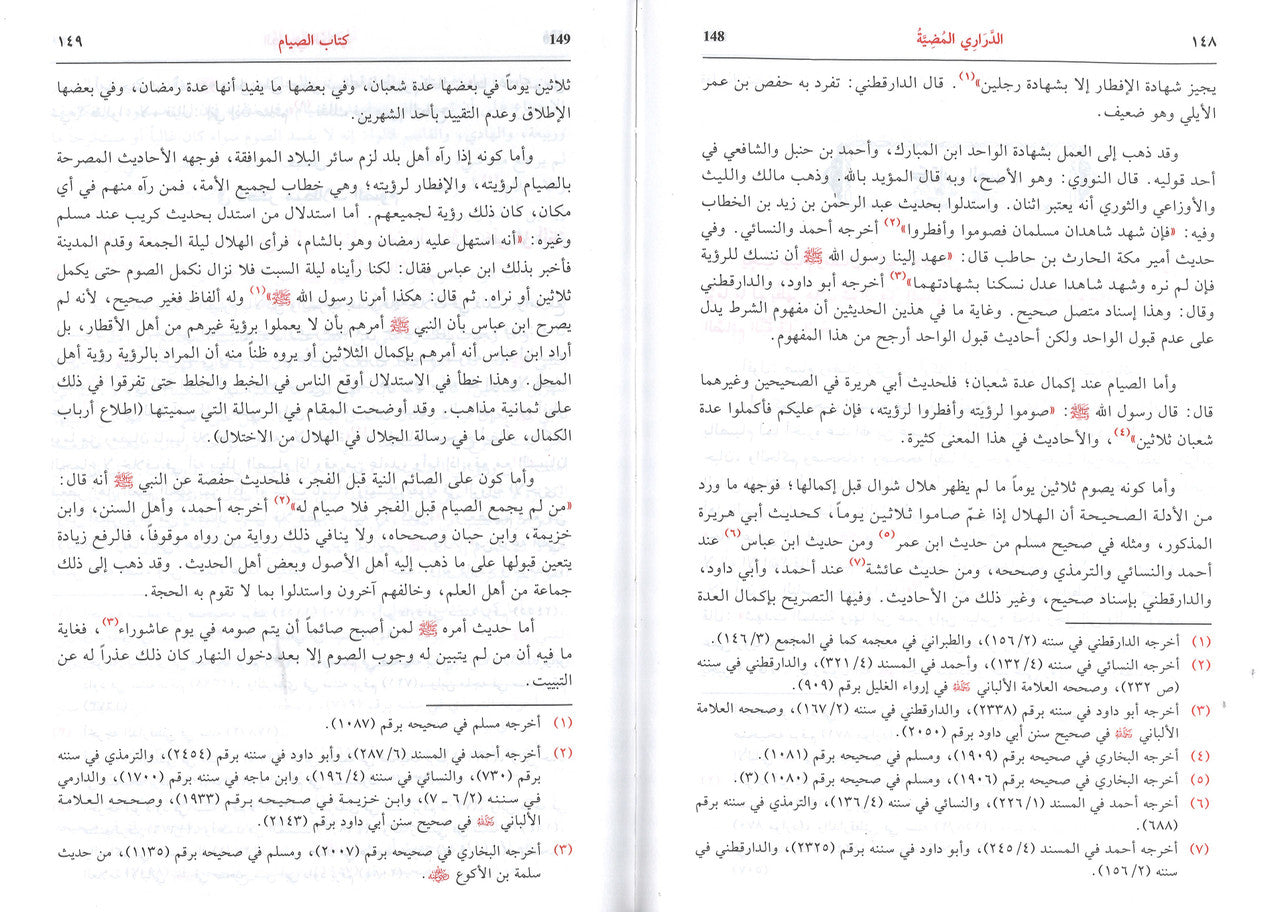 ١٤٨ الدَّرَارِي المُضِيَّةُ 148
يجيز شهادة الإفطار إلا بشهادة رجلين»(١). قال الدارقطني: تفرد به حفص بن عمر
الأيلي وهو ضعيف.
وقد ذهب إلى العمل بشهادة الواحد ابن المبارك، وأحمد بن حنبل والشافعي في
أحد قوليه. قال النووي: وهو الأصح، وبه قال المؤيد بالله. وذهب مالك والليث
والأوزاعي والثوري أنه يعتبر اثنان. واستدلوا بحديث عبد الرحمٰن بن زيد بن الخطاب
وفيه: «فإن شهد شاهدان مسلمان فصوموا وأفطروا»(٢) أخرجه أحمد والنسائي. وفي
حديث أمير مكة الحارث بن حاطب قال: «عهد إلينا رسول الله ﷺ أن ننسك للرؤية
فإن لم نره وشهد شاهدا عدل نسكنا بشهادتهما»(٣) أخرجه أبو داود، والدارقطني
وقال: وهذا إسناد متصل صحيح. وغاية ما في هذين الحديثين أن مفهوم الشرط يدل
على عدم قبول الواحد ولكن أحاديث قبول الواحد أرجح من هذا المفهوم.
وأما الصيام عند إكمال عدة شعبان؛ فلحديث أبي هريرة في الصحيحين وغيرهما
قال: قال رسول الله ﷺ: «صوموا لرؤيته وأفطروا لرؤيته، فإن غم عليكم فأكملوا عدة
شعبان ثلاثين»(٤)، والأحاديث في هذا المعنى كثيرة.
وأما كونه يصوم ثلاثين يوماً ما لم يظهر هلال شوال قبل إكمالها؛ فوجهه ما ورد
من الأدلة الصحيحة أن الهلال إذا غمّ صاموا ثلاثين يوماً، كحديث أبي هريرة
المذكور، ومثله في صحيح مسلم من حديث ابن عمر(٥) ومن حديث ابن عباس(٦) عند
أحمد والنسائي والترمذي وصححه، ومن حديث عائشة(٧) عند أحمد، وأبي داود،
والدارقطني بإسناد صحيح، وغير ذلك من الأحاديث. وفيها التصريح بإكمال العدة
(١) أخرجه الدارقطني في سننه (١٥٦/٢)، والطبراني في معجمه كما في المجمع (١٤٦/٣).
(٢) أخرجه النسائي في سننه (١٣٢/٤)، وأحمد في المسند (٣٢١/٤)، والدارقطني في سننه
(ص ٢٣٢)، وصححه العلامة الألباني رحمه الله في إرواء الغليل برقم (٩٠٩).
(٣) أخرجه أبو داود في سننه برقم (٢٣٣٨)، والدارقطني في سننه (١٦٧/٢)، وصححه العلامة
الألباني رحمه الله في صحيح سنن أبي داود برقم (٢٠٥٠).
(٤) أخرجه البخاري في صحيحه برقم (١٩٠٩)، ومسلم في صحيحه برقم (١٠٨١).
(٥) أخرجه البخاري في صحيحه برقم (١٩٠٦)، ومسلم في صحيحه برقم (١٠٨٠) (٣).
(٦) أخرجه أحمد في المسند (٢٢٦/١)، والنسائي في سننه (١٣٦/٤)، والترمذي في سننه برقم
(٦٨٨).
(٧) أخرجه أحمد في المسند (٢٤٥/٤)، وأبو داود في سننه برقم (٢٣٢٥)، والدارقطني في
سننه (١٥٦/٢).
149 كتاب الصيام ١٤٩
ثلاثين يوماً في بعضها عدة شعبان، وفي بعضها ما يفيد أنها عدة رمضان، وفي بعضها
الإطلاق وعدم التقييد بأحد الشهرين.
وأما كونه إذا رآه أهل بلد لزم سائر البلاد الموافقة، فوجهه الأحاديث المصرحة
بالصيام لرؤيته، والإفطار لرؤيته؛ وهي خطاب لجميع الأمة، فمن رآه منهم في أي
مكان، كان ذلك رؤية لجميعهم. أما استدلال من استدل بحديث كريب عند مسلم
وغيره: «أنه استهل عليه رمضان وهو بالشام، فرأى الهلال ليلة الجمعة وقدم المدينة
فأخبر بذلك ابن عباس فقال: لكنا رأيناه ليلة السبت فلا نزال نكمل الصوم حتى يكمل
ثلاثين أو نراه. ثم قال: هكذا أمرنا رسول الله ﷺ»(١) وله ألفاظ فغير صحيح، لأنه لم
يصرح ابن عباس بأن النبي ﷺ أمرهم بأن لا يعملوا برؤية غيرهم من أهل الأقطار، بل
أراد ابن عباس أنه أمرهم بإكمال الثلاثين أو يروه ظناً منه أن المراد بالرؤية رؤية أهل
المحل. وهذا خطأ في الاستدلال أوقع الناس في الخبط والخلط حتى تفرقوا في ذلك
على ثمانية مذاهب. وقد أوضحت المقام في الرسالة التي سميتها (اطلاع أرباب
الكمال، على ما في رسالة الجلال في الهلال من الاختلال).
وأما كون على الصائم النية قبل الفجر، فلحديث حفصة عن النبي ﷺ أنه قال:
«من لم يجمع الصيام قبل الفجر فلا صيام له»(٢) أخرجه أحمد، وأهل السنن، وابن
خزيمة، وابن حبان وصححاه، ولا ينافي ذلك رواية من رواه موقوفاً، فالرفع زيادة
يتعين قبولها على ما ذهب إليه أهل الأصول وبعض أهل الحديث. وقد ذهب إلى ذلك
جماعة من أهل العلم، وخالفهم آخرون واستدلوا بما لا تقوم به الحجة.
أما حديث أمره ﷺ لمن أصبح صائماً أن يتم صومه في يوم عاشوراء(٣)، فغاية
ما فيه أن من لم يتبين له وجوب الصوم إلا بعد دخول النهار كان ذلك عذراً له عن
التبييت.
(١) أخرجه مسلم في صحيحه برقم (١٠٨٧).
(٢) أخرجه أحمد في المسند (٢٨٧/٦)، وأبو داود في سننه برقم (٢٤٥٤)، والترمذي في سننه
برقم (٧٣٠)، والنسائي في سننه (١٩٦/٤)، وابن ماجه في سننه برقم (١٧٠٠)، والدارمي
في سننه (٦/٢ ـ ٧)، وابن خزيمة في صحيحه برقم (١٩٣٣)، وصححه العلامة
الألباني رحمه الله في صحيح سنن أبي داود برقم (٢١٤٣).
(٣) أخرجه البخاري في صحيحه برقم (٢٠٠٧)، ومسلم في صحيحه برقم (١١٣٥)، من حديث
سلمة بن الأكوع رضي الله عنه.